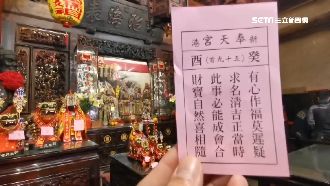 SETN三立新聞網
新港奉天宮
癸(第五十九首)酉
有心作福莫遲疑
求名清吉正當時
此事必能成會合
財寶自然喜相隨